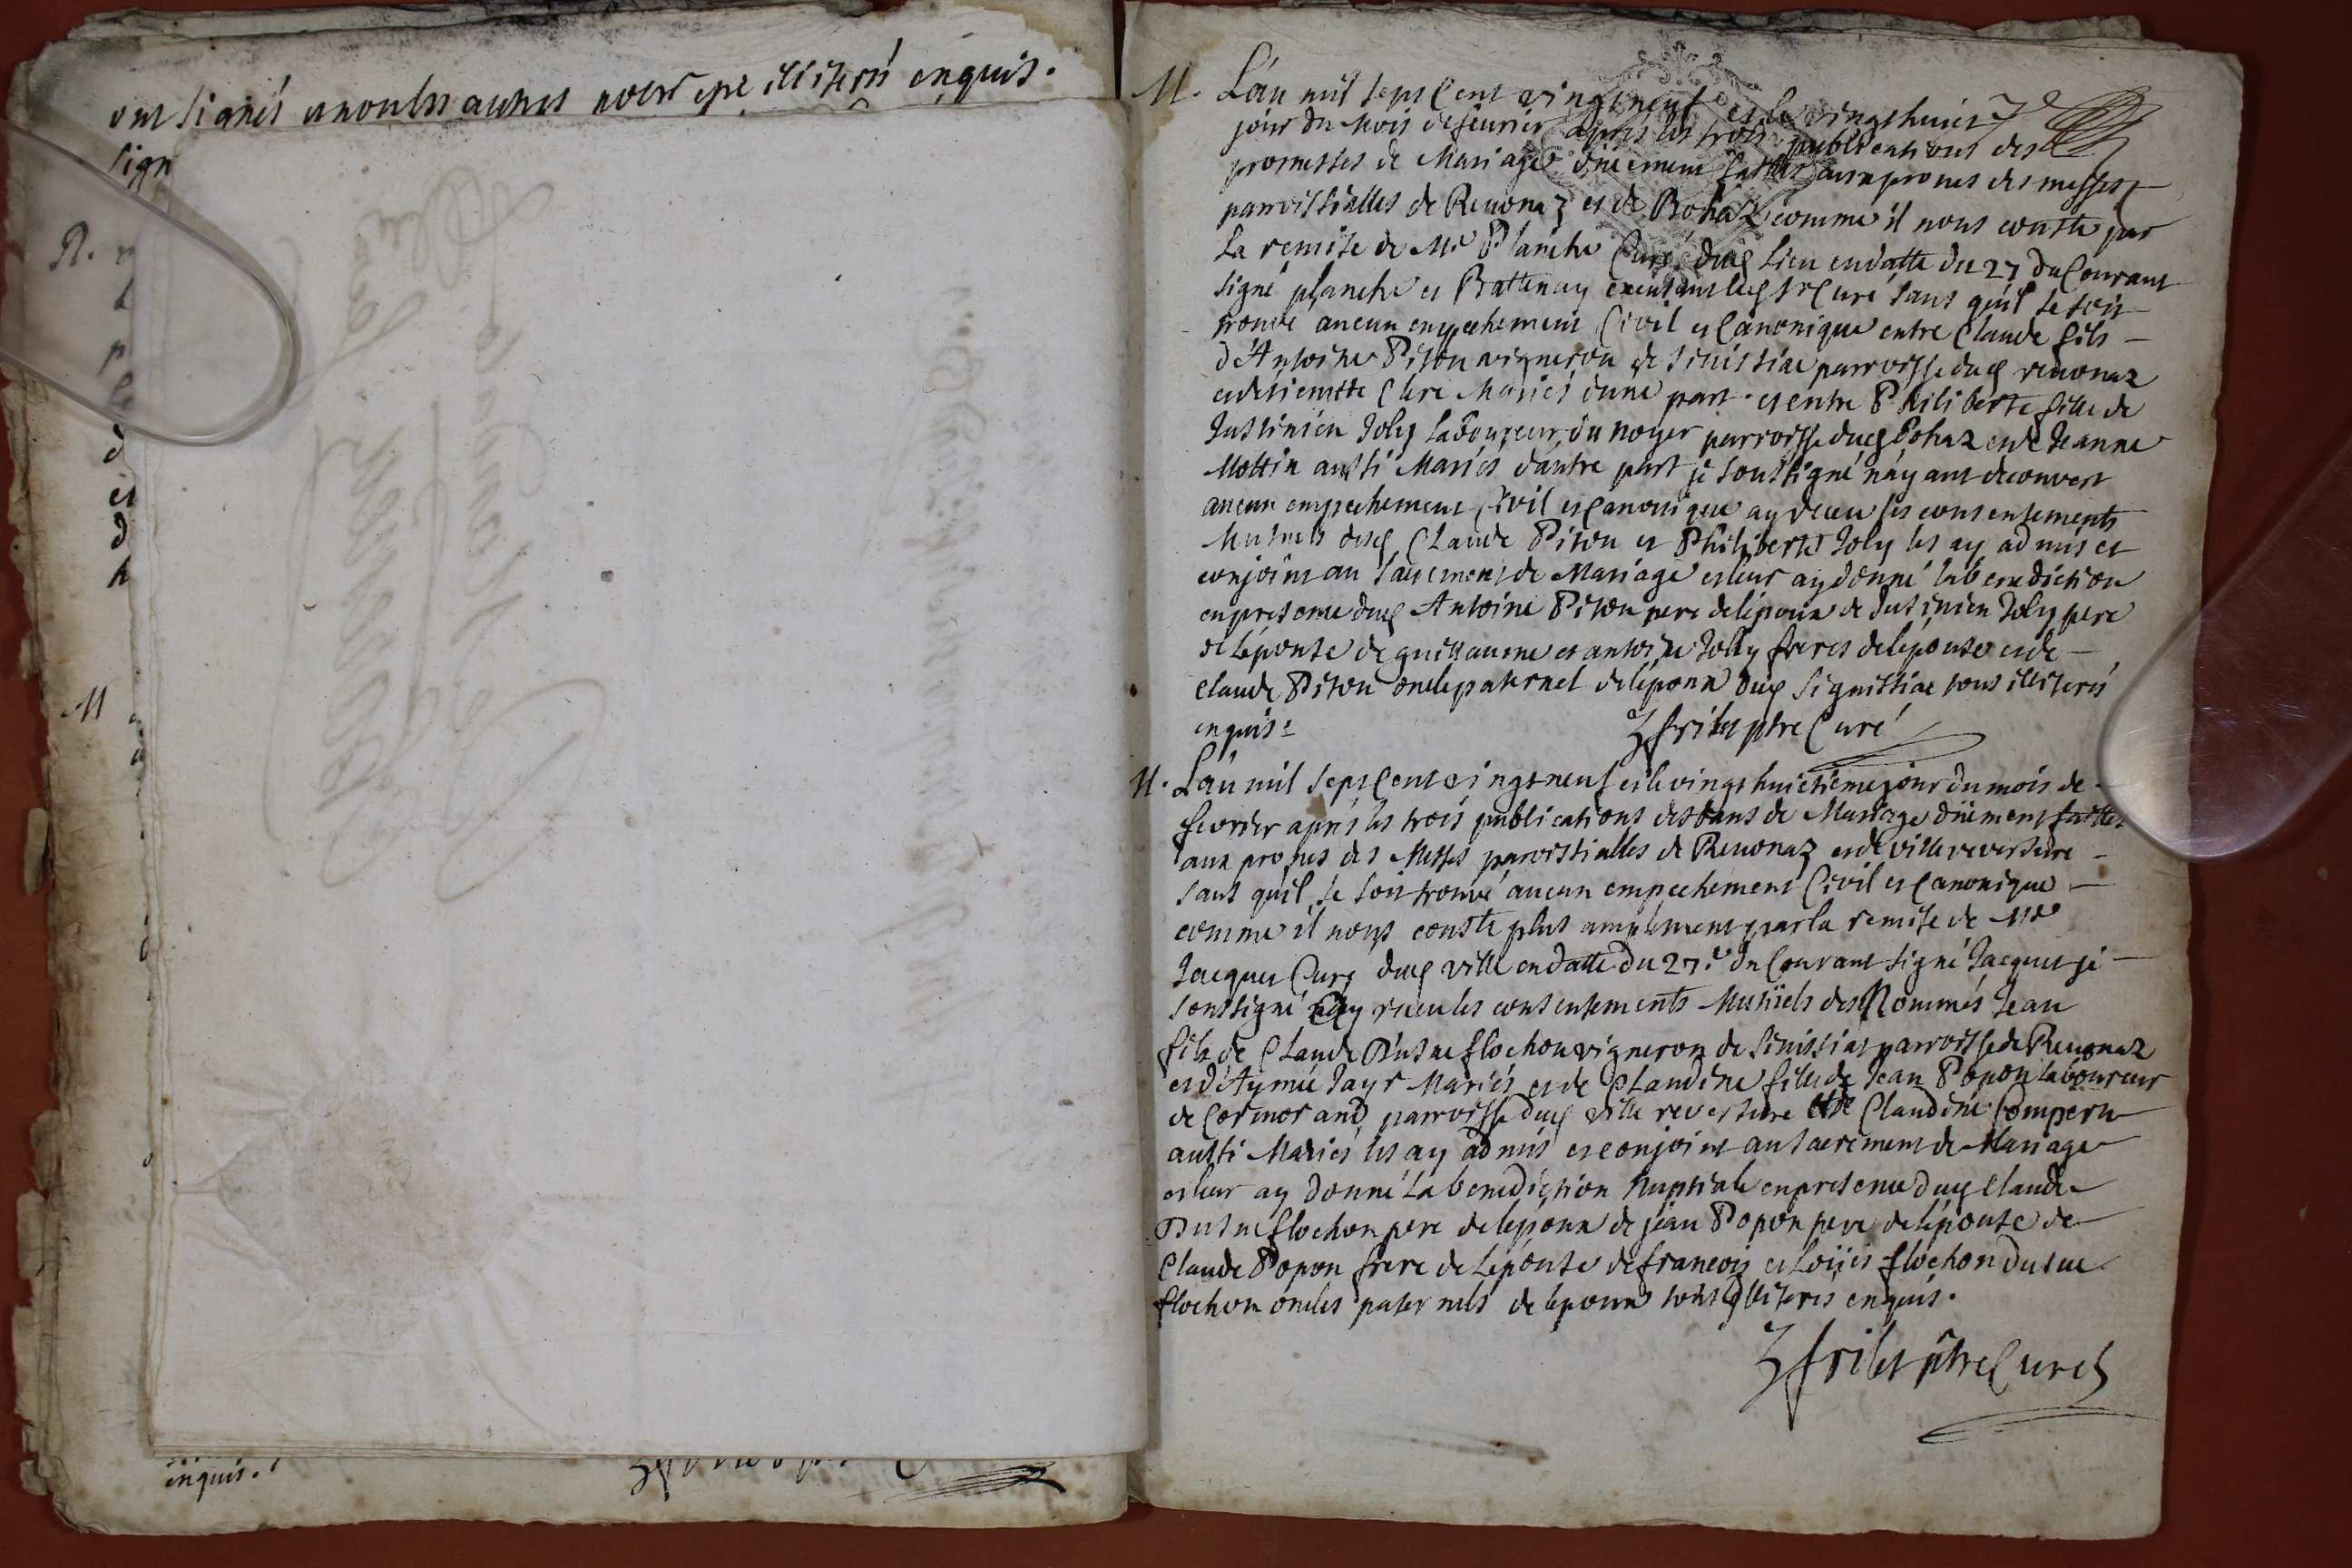 ont signés
enquis.
Sign
R.
M
enquis.
M. L'an mil sept Cent vingt neuf et le vingt huict
jour du mois de feurier après les trois publications des
promesses de Mariage düement faittes aux prones des messes
parroissialles de Reuonaz et de Bohaz comme il nous conste par
La remise de Mre Planche Curé dud lieu en datte du 27 du Courant
signé planche et sans qu'il se soit
trouvé aucun empechement Civil et Canonique entre Claude fils
d'Antoine Piton vigneron de Sinissiae parroisse dud reuonaz
et Mariés dune part et entre Philiberte fille de
Justinien Joly Laboureur du noyer parroisse dud Bohaz et de Jeanne
Mottin aussi Mariés dautre part je soussigné nayant decouvert
aucun empechement Civil et Canonique ay receu les consentements
Mutuels desd Claude Piton et Philiberte Joly les ay admis et
conjoins au Sacrement de Mariage et leur ay donné la benediction
en presence dud Antoine Piton pere de lépoux de Justinien Joly pere
de Lépouse de guillaume et antoine Jolly freres de lépouse et de
Claude Piton oncle paternel de lépoux dud Signissiae tous illiterés
enquis. ptre Curé
M. L'an mil sept Cent vingt neuf et le vingt huictième jour du mois de
fevrier après les trois publications des bans de Mariage düement faittes
aux prones des Messes parroissialles de Reuonaz et de villereversure
sans qu'il se soit trouvé aucun empechement Civil et Canonique
comme il nous conste plus amplement par la remise de Mre
Jacques Curé dud ville en datte du 27e du Courant signé Jacques je
soussigné ay receu les consentements Mutüels des Nommés Jean
fils de Claude flochon vigneron de Sinissiat parroisse de Reuonaz
et d'Aymée Jayr Mariés et de Claudine fille de Jean Popon laboureur
de Cormorand parroisse dud ville reversure et de Claudine
aussi Mariés les ay admis et conjoint au sacrement de Mariage
et leur ay donné La benediction Nuptiale en presence dud Claude
flochon pere de lépoux de jean Popon pere de lépouse de
Claude Popon frere de Lépouse de francois et Loüis flochon
flochon oncles paternels de lepoux tous illiterés enquis.
ptre Curé